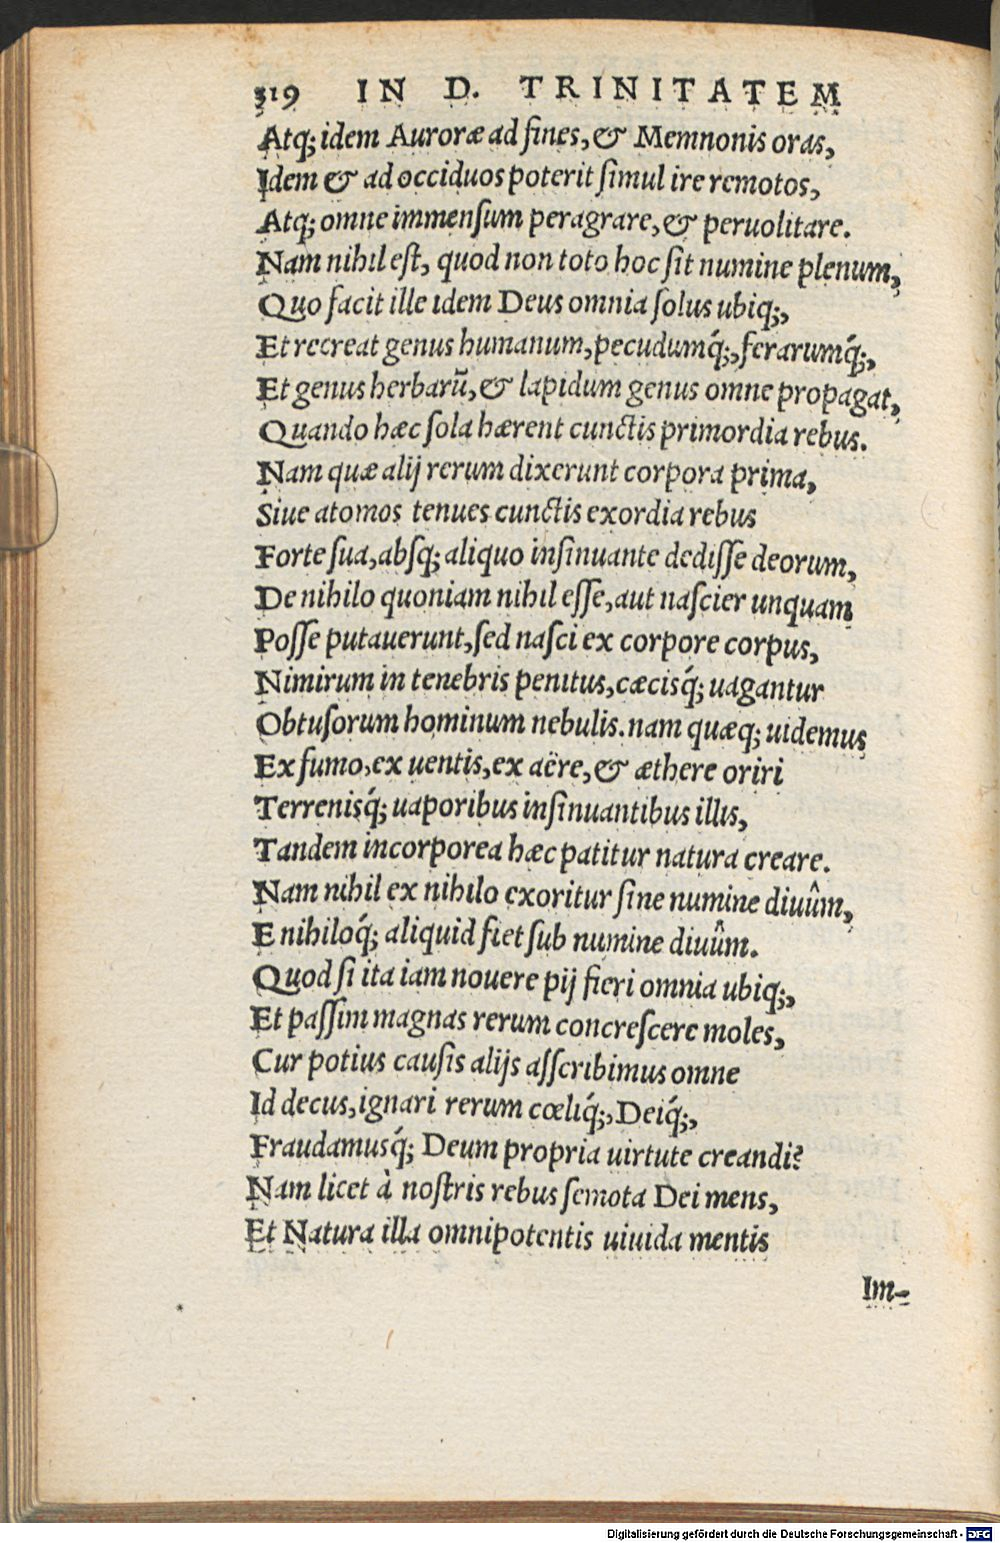 319 IN D. TRINITATEM
Atq; idem Auroræ ad fines, & Memnonis oras,
Idem & ad occiduos poterit simul ire remotos,
Atq; omne immensum peragrare, & peruolitare.
Nam nihil est, quod non toto hoc sit numine plenum,
Quo facit ille idem Deus omnia solus ubiq;,
Et recreat genus humanum, pecudumq́;, ferarumq́;,
Et genus herbarũ, & lapidum genus omne propagat,
Quando hæc sola hærent cunctis primordia rebus.
Nam quæ alij rerum dixerunt corpora prima,
Siue atomos tenues cunctis exordia rebus
Forte sua, absq; aliquo insinuante dedisse deorum,
De nihilo quoniam nihil esse, aut nascier unquam
Posse putauerunt, sed nasci ex corpore corpus,
Nimirum in tenebris penitus, cæcisq́; uagantur
Obtusorum hominum nebulis. nam quæq; uidemus
Ex fumo, ex uentis, ex aëre, & æthere oriri
Terrenisq́; uaporibus insinuantibus illis,
Tandem incorporea hæc patitur natura creare.
Nam nihil ex nihilo exoritur sine numine diuûm,
E nihiloq́; aliquid fiet sub numine diuûm.
Quod si ita iam nouere pij fieri omnia ubiq;,
Et passim magnas rerum concrescere moles,
Cur potius causis alijs asscribimus omne
Id decus, ignari rerum cœliq́;, Deiq́;,
Fraudamusq́; Deum propria uirtute creandi?
Nam licet à nostris rebus semota Dei mens,
Et Natura illa omnipotentis uiuida mentis
Im-
Digitalisierung gefördert durch die Deutsche Forschungsgemeinschaft - DFG